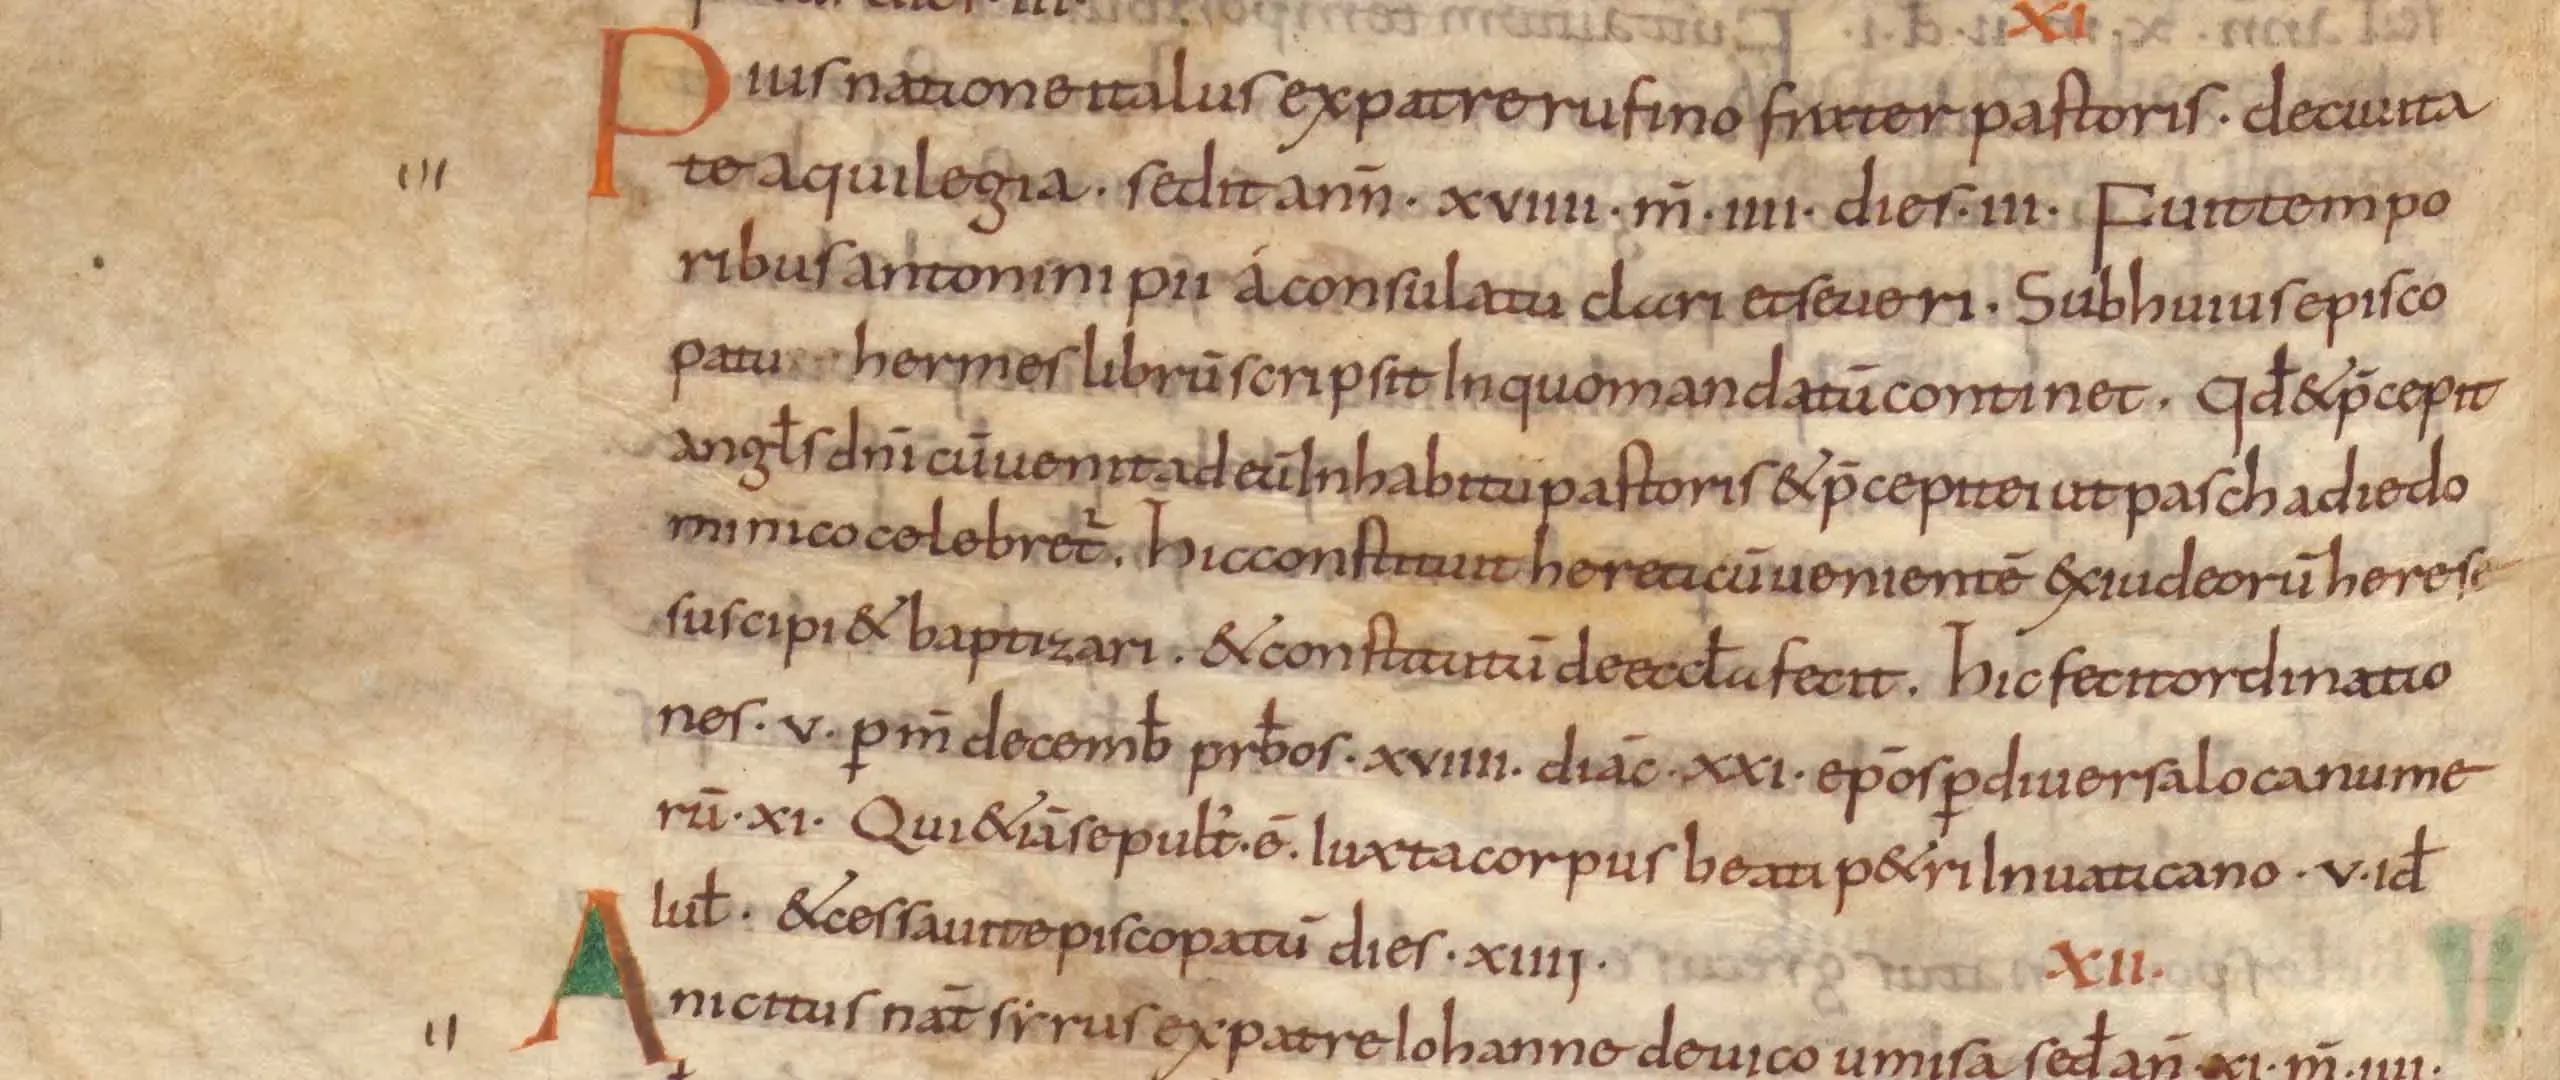 XI
Pius natione italus ex patre rufino frater pastoris · de ciuita
te aquilegia · sedit ann̄ · xviiii · m̄ · iiii · dies · iii · Fuit tempo
ribus antonini pii á consulatu clari et seueri . Sub huius episco
patu hermes librū scripsit In quo mandatū continet . Qd̄ & p̄cepit
angƚs dn̄i cū uenit ad eū In habitu pastoris & p̄cepit ei ut pascha die do
minico celebret̉ . hic constituit hereticū uenientē ex iudeorū herese
suscipi & baptizari . & constitutū de eccƚa fecit . hic fecit ordinatio
nes · v · ꝑ m̄ decemƀ prƀos · xviiii · diāc · xxi · ep̄os ꝑ diuersa loca nume
rū · xi · Qui & iā sepulť · ē . Iuxta corpus beati p&ri In uaticano · v · iđ
Iuƚ · & cessauit episcopatū dies · xiiij ·
XII .
Anicitus nat̄ sirrus ex patre Iohanne de uico umisa seđ an̄ · xi · m̄ · iiii ·